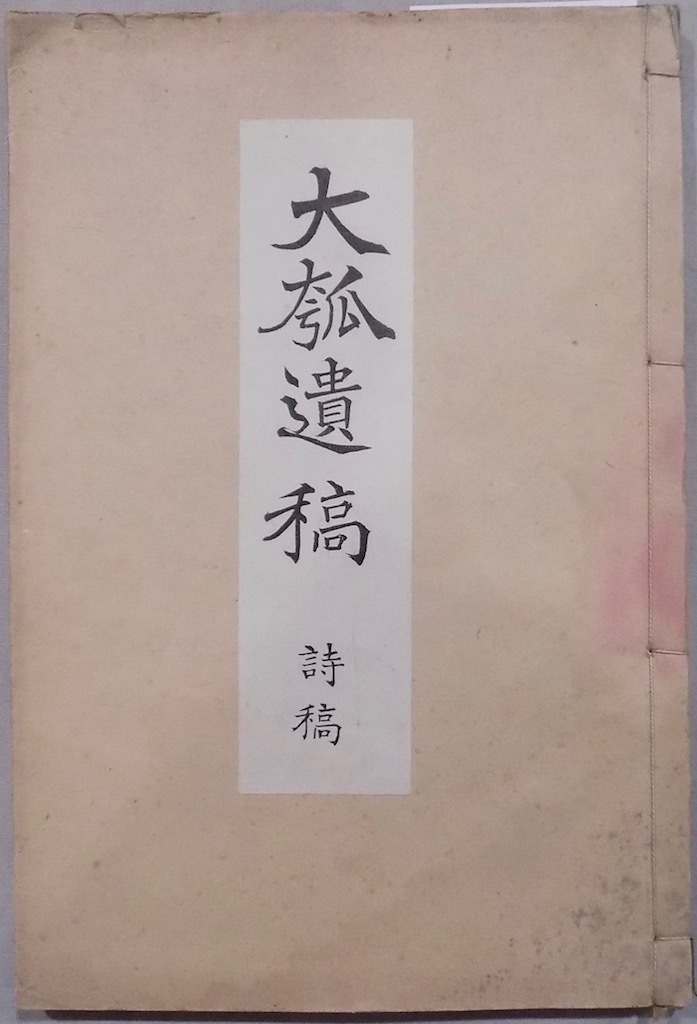 大瓠遺稿
詩稿